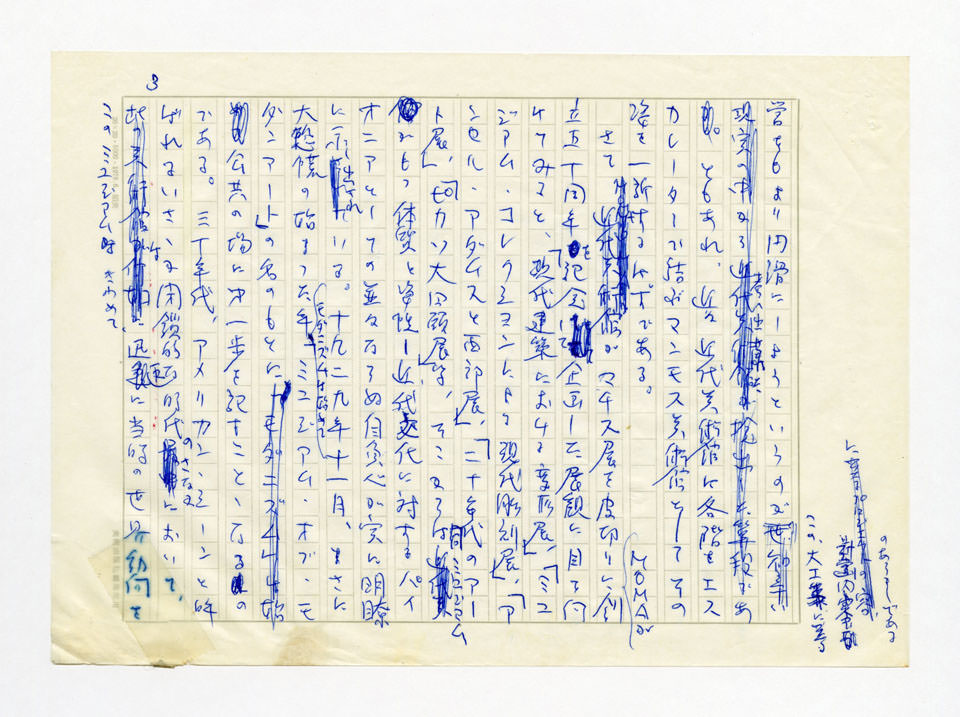 3
のあらましである
この大工事に至る
営をもより円滑にしようというのが
現実の中から
ともあれ、近々近代美術館は各階をエス
カレーターで結ぶマンモス美術館としてその
姿を一新するはずである。
さて
MOMAが
マチス展を皮切りに創
立五十周年を記念して企画した展観に目を向
けてみると、「現代建築における変形展」、「ミュ
ジアム・コレクションによる現代彫刻展」、「ア
ンセル・アダムスと西部展」、「二十年代のアー
ト展」、「ピカソ大回顧展」等、そこからは
同ミュジアム
がもつ体質と資性―近代文化に対するパイ
オニアとしての並々ならぬ自負心が実に明瞭
に示されている。一九二九年十一月、まさに
大恐慌の始まった年、ミュジアム・オブ・モ
ダンアートの名のもとに
公共の場に第一歩を記すことゝなるの
である。三十年代、アメリカン・シーンと呼
ばれるいささか閉鎖的な時代のさなかにおいて、
このミュジアムは きわめて
迅速に当時の世界動向を